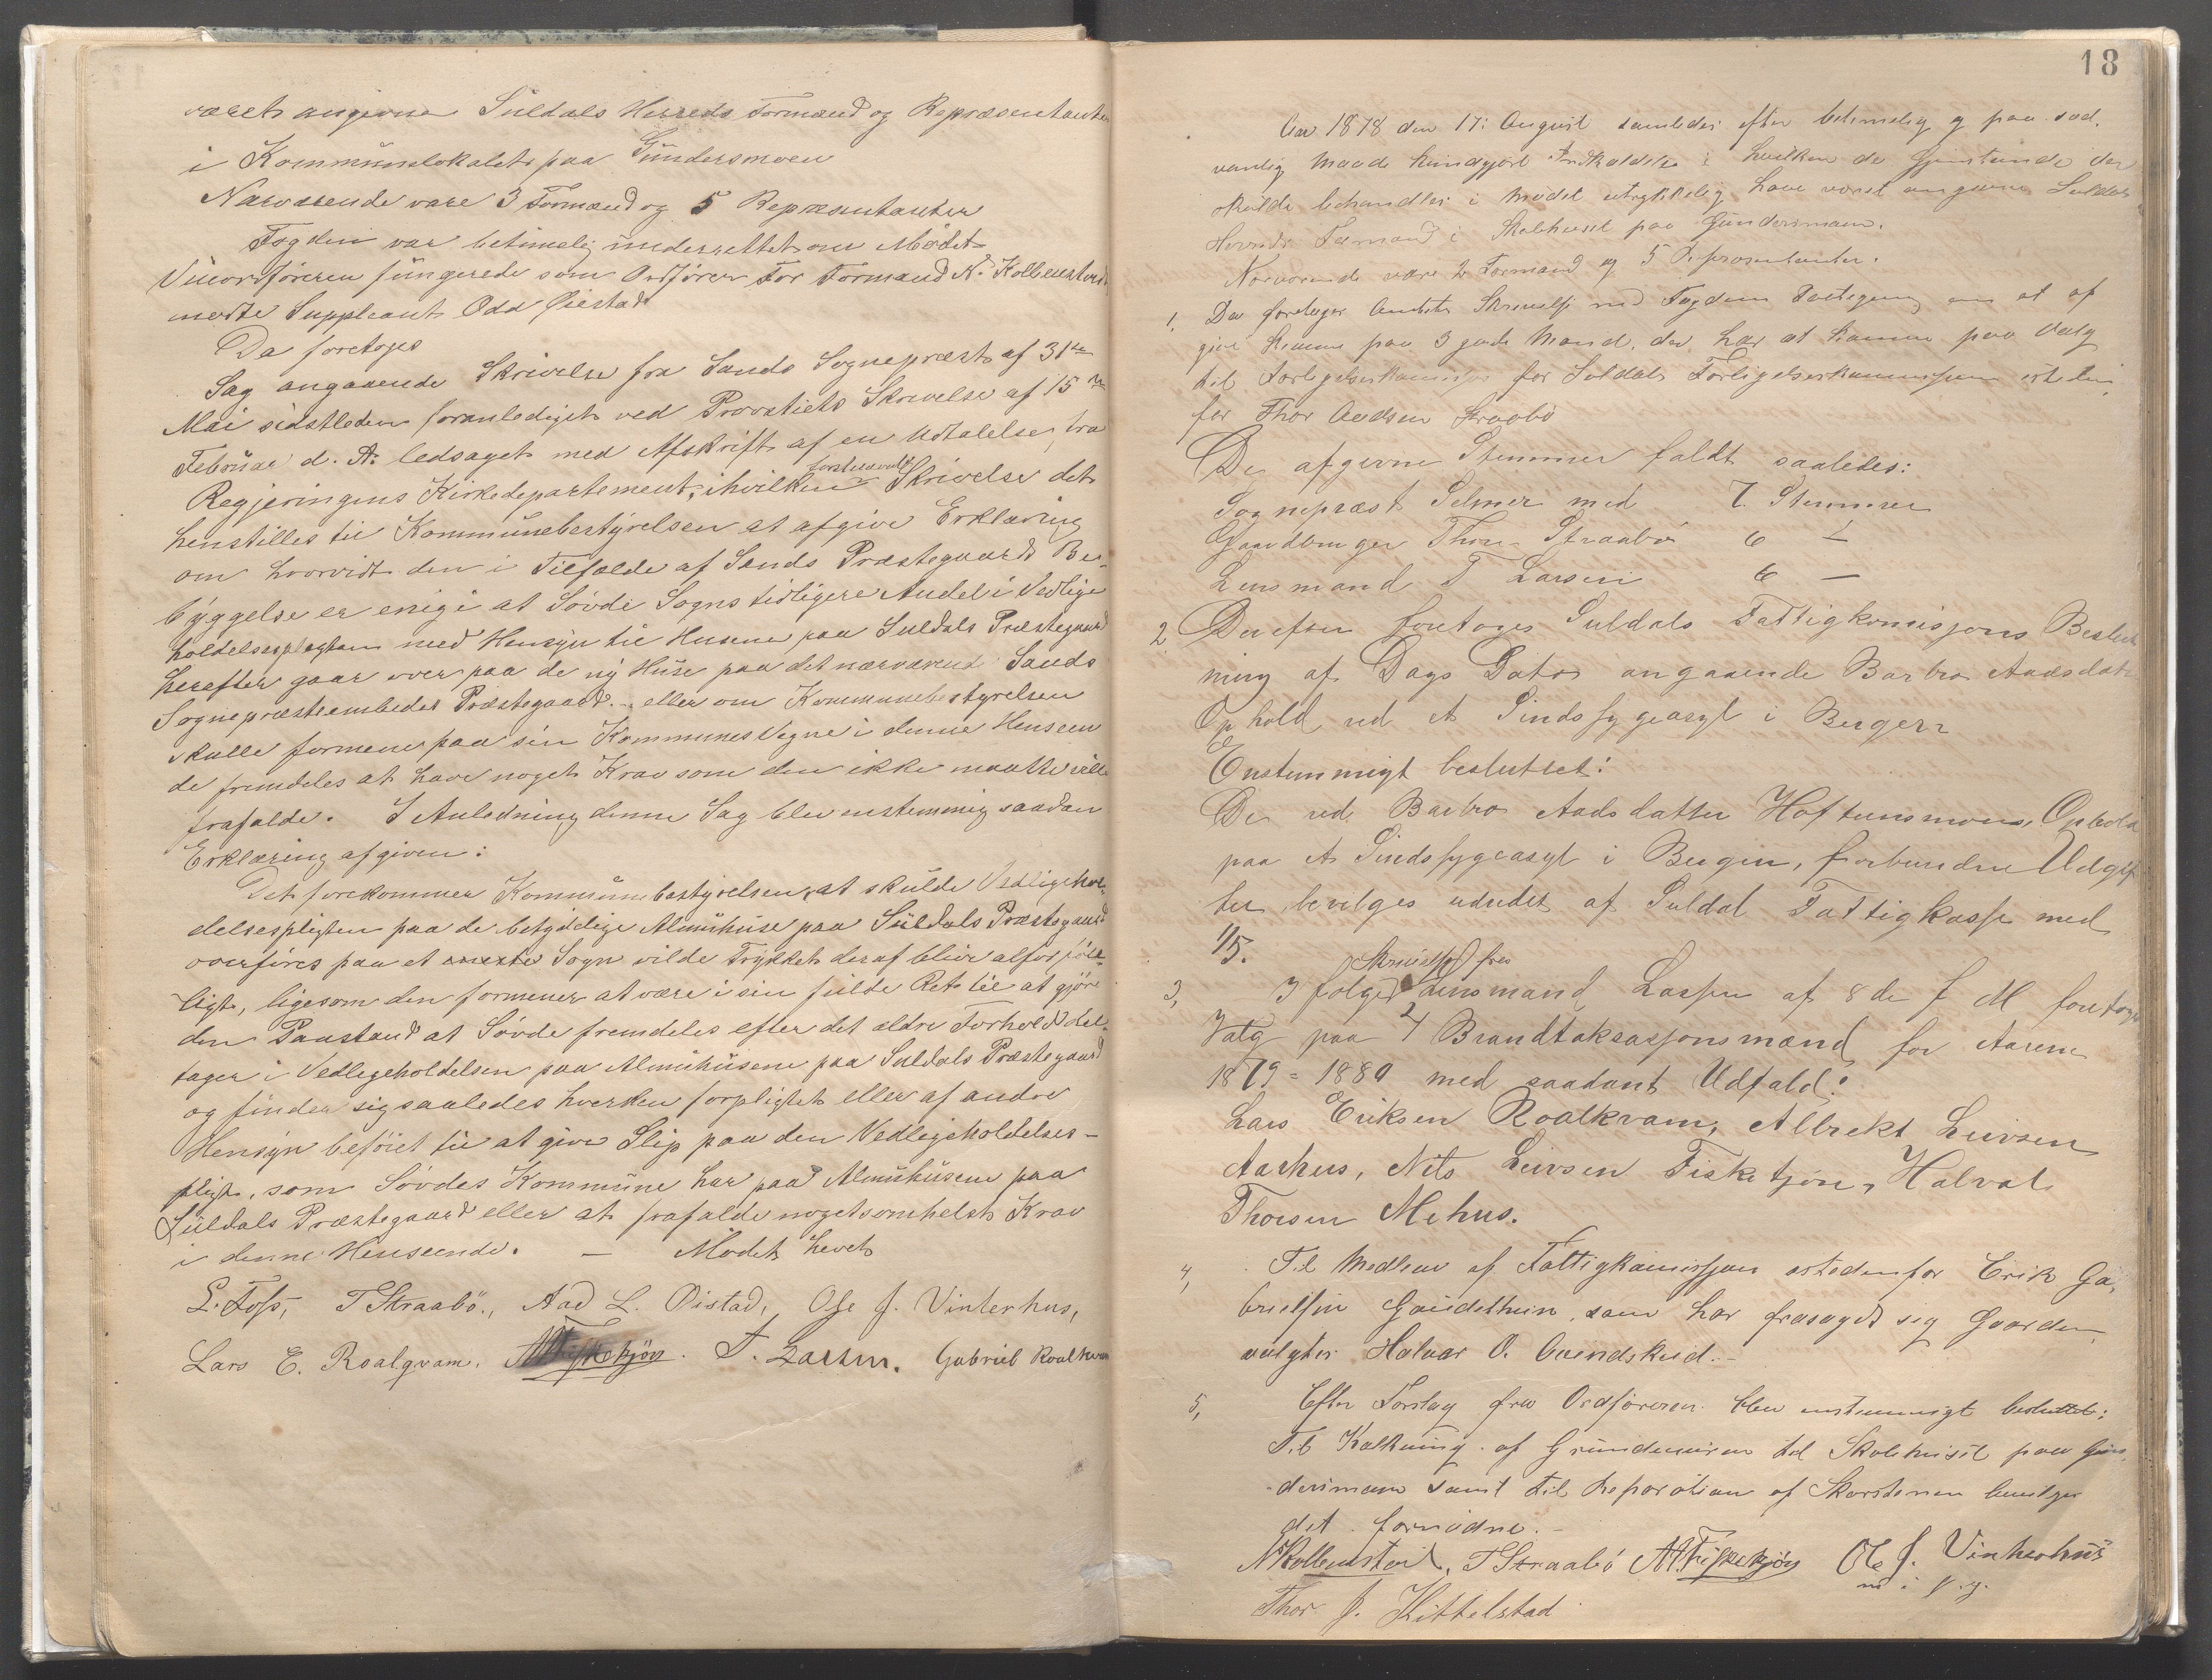 været angivne Suldals Herreds Formænd og Repræsentanter
i Kommunelokalet paa Gundersmoen
Nærværende vare 3 Formænd og 5 Repræsentanter
Fogden var betimelig underrettet om Mødet
Viceordføreren fungerede som Ordfører For Formand N. Kolbenstvedt
mødte Suppleant Odd Øiestad
Da foretoges
Sag angaaende Skrivelse fra Sands Sognepræst af 31te
Mai sidstleden foranlediget ved Provstiets Skrivelse af 15de
Februar d. A. ledsaget med Afskrift af en Udtalelse fra
Regjeringens Kirkedepartement, ihvilken førstnævnte Skrivelse det
henstilles til Kommunebestyrelsen at afgive Erklæring
om hvorvidt den i Tilfælde af Sands Præstegaards Be-
byggelse er enig i at Søvde Sogns tidligere Andel i Vedlige
holdelsespligten med Hensyn til Husene paa Suldals Præstegaard
herefter gaar over paa de ny Huse paa det nærværende Sands
Sognepræsteembedes Præstegaard - eller om Kommunebestyrelsen
skulle formene paa sin Kommunes Vegne i denne Henseen
de fremdeles at have noget Krav som den ikke maatte ville
frafalde. I Anledning denne Sag blev enstemmig saadan
Erklæring afgiven:
Det forekommer Kommunebestyrelsen, at skulde Vedligehol-
delsespligten paa de betydelige Almuhuse paa Suldals Præstegaard
overføres paa et eneste Sogn vilde Trykket deraf blive alfor føle-
ligt, ligesom den formener at være i sin fulde Ret til at gjøre
den Paastand at Søvde fremdeles efter det ældre Forhold del-
tager i Vedligeholdelsen paa Almuhusene paa Suldals Præstegaard
og finder sig saaledes hverken forpligtet eller af andre
Hensyn beføiet til at give Slip paa den Vedligeholdelses-
pligt, som Søvdes Kommune har paa Almuhusene paa
Suldals Præstegaard eller at frafalde nogetsomhelst Krav
i denne Henseende. — Mødet hævet
L. Foss, T Straabö., Aad L. Öistad, Ole J. Vinterhus,
Lars E. Roalqvam. NTFisketjön. T. Larsen. Gabriel Roalkvam
18
Aar 1878 den 17: August samledes efter betimelig og paa sed-
vanlig Maade kundgjort Indkaldelse i hvilken de Gjenstande der
skulde behandles i Mødet udtrykkelig have været angivne Suldals
Herreds Formænd i Skolehuset paa Gundersmoen.
Nærværende vare 2 Formænd og 5 Repræsentanter.
1. Da foretoges Amtets Skrivelse med Fogdens Paategning om at af
give Stemme paa 3 gode Mænd, der har at komme paa Valg
til Forligelseskommissær for Suldals Forligelseskommission istedet
for Thor Aadsen Straabö
De afgivne Stemmer faldt saaledes:
Sognepræst Selmer med 7. Stemmer
Gaardbruger Thor Straabö 6 —
Lensmand T Larsen 6 —
2. Derefter foretoges Suldals Fattigkomisjons Beslut
ning af Dags Dato angaaende Barbro Aadsdatr
Ophold ved et Sindssygeasyl i Bergen
Enstemmigt besluttet:
De ved Barbro Aadsdatter Hoftunsmoens, Ophold
paa et Sindssygeasyl i Bergen, forbundne Udgif
ter bevilges udredet af Suldal Fattigkasse med
1/5.
3, Ifølge Skrivelse fra Lensmand Larsen af 8de f M foretoges
Valg paa 4 Brandtaksasjonsmænd for Aarene
1879-1880 med saadant Udfald:
Lars Eriksen Roalkvam, Albrekt Leivsen
Aarhus, Nils Leivsen Fisketjön, Halval
Thorsen Mehus.
4, Til Medlem af Fattigkomissjon istedenfor Erik Ga,
brielsen Gaudethun, som har frasagt sig Gaarden,
valgtes Halvor O. Qvindskeid.-
5, Efter Forslag fra Ordføreren blev enstemmigt besluttet:
Til Kalkning af Grundmuren til Skolehuset paa Gun-
-dersmoen samt til Reparation af Skorstenen bevilges
det fornødne.-
NKolbenstvedt, T Straabö NTFisketjön Ole J. Vinterhus
m i p. g.
Thor J. Kittelstad